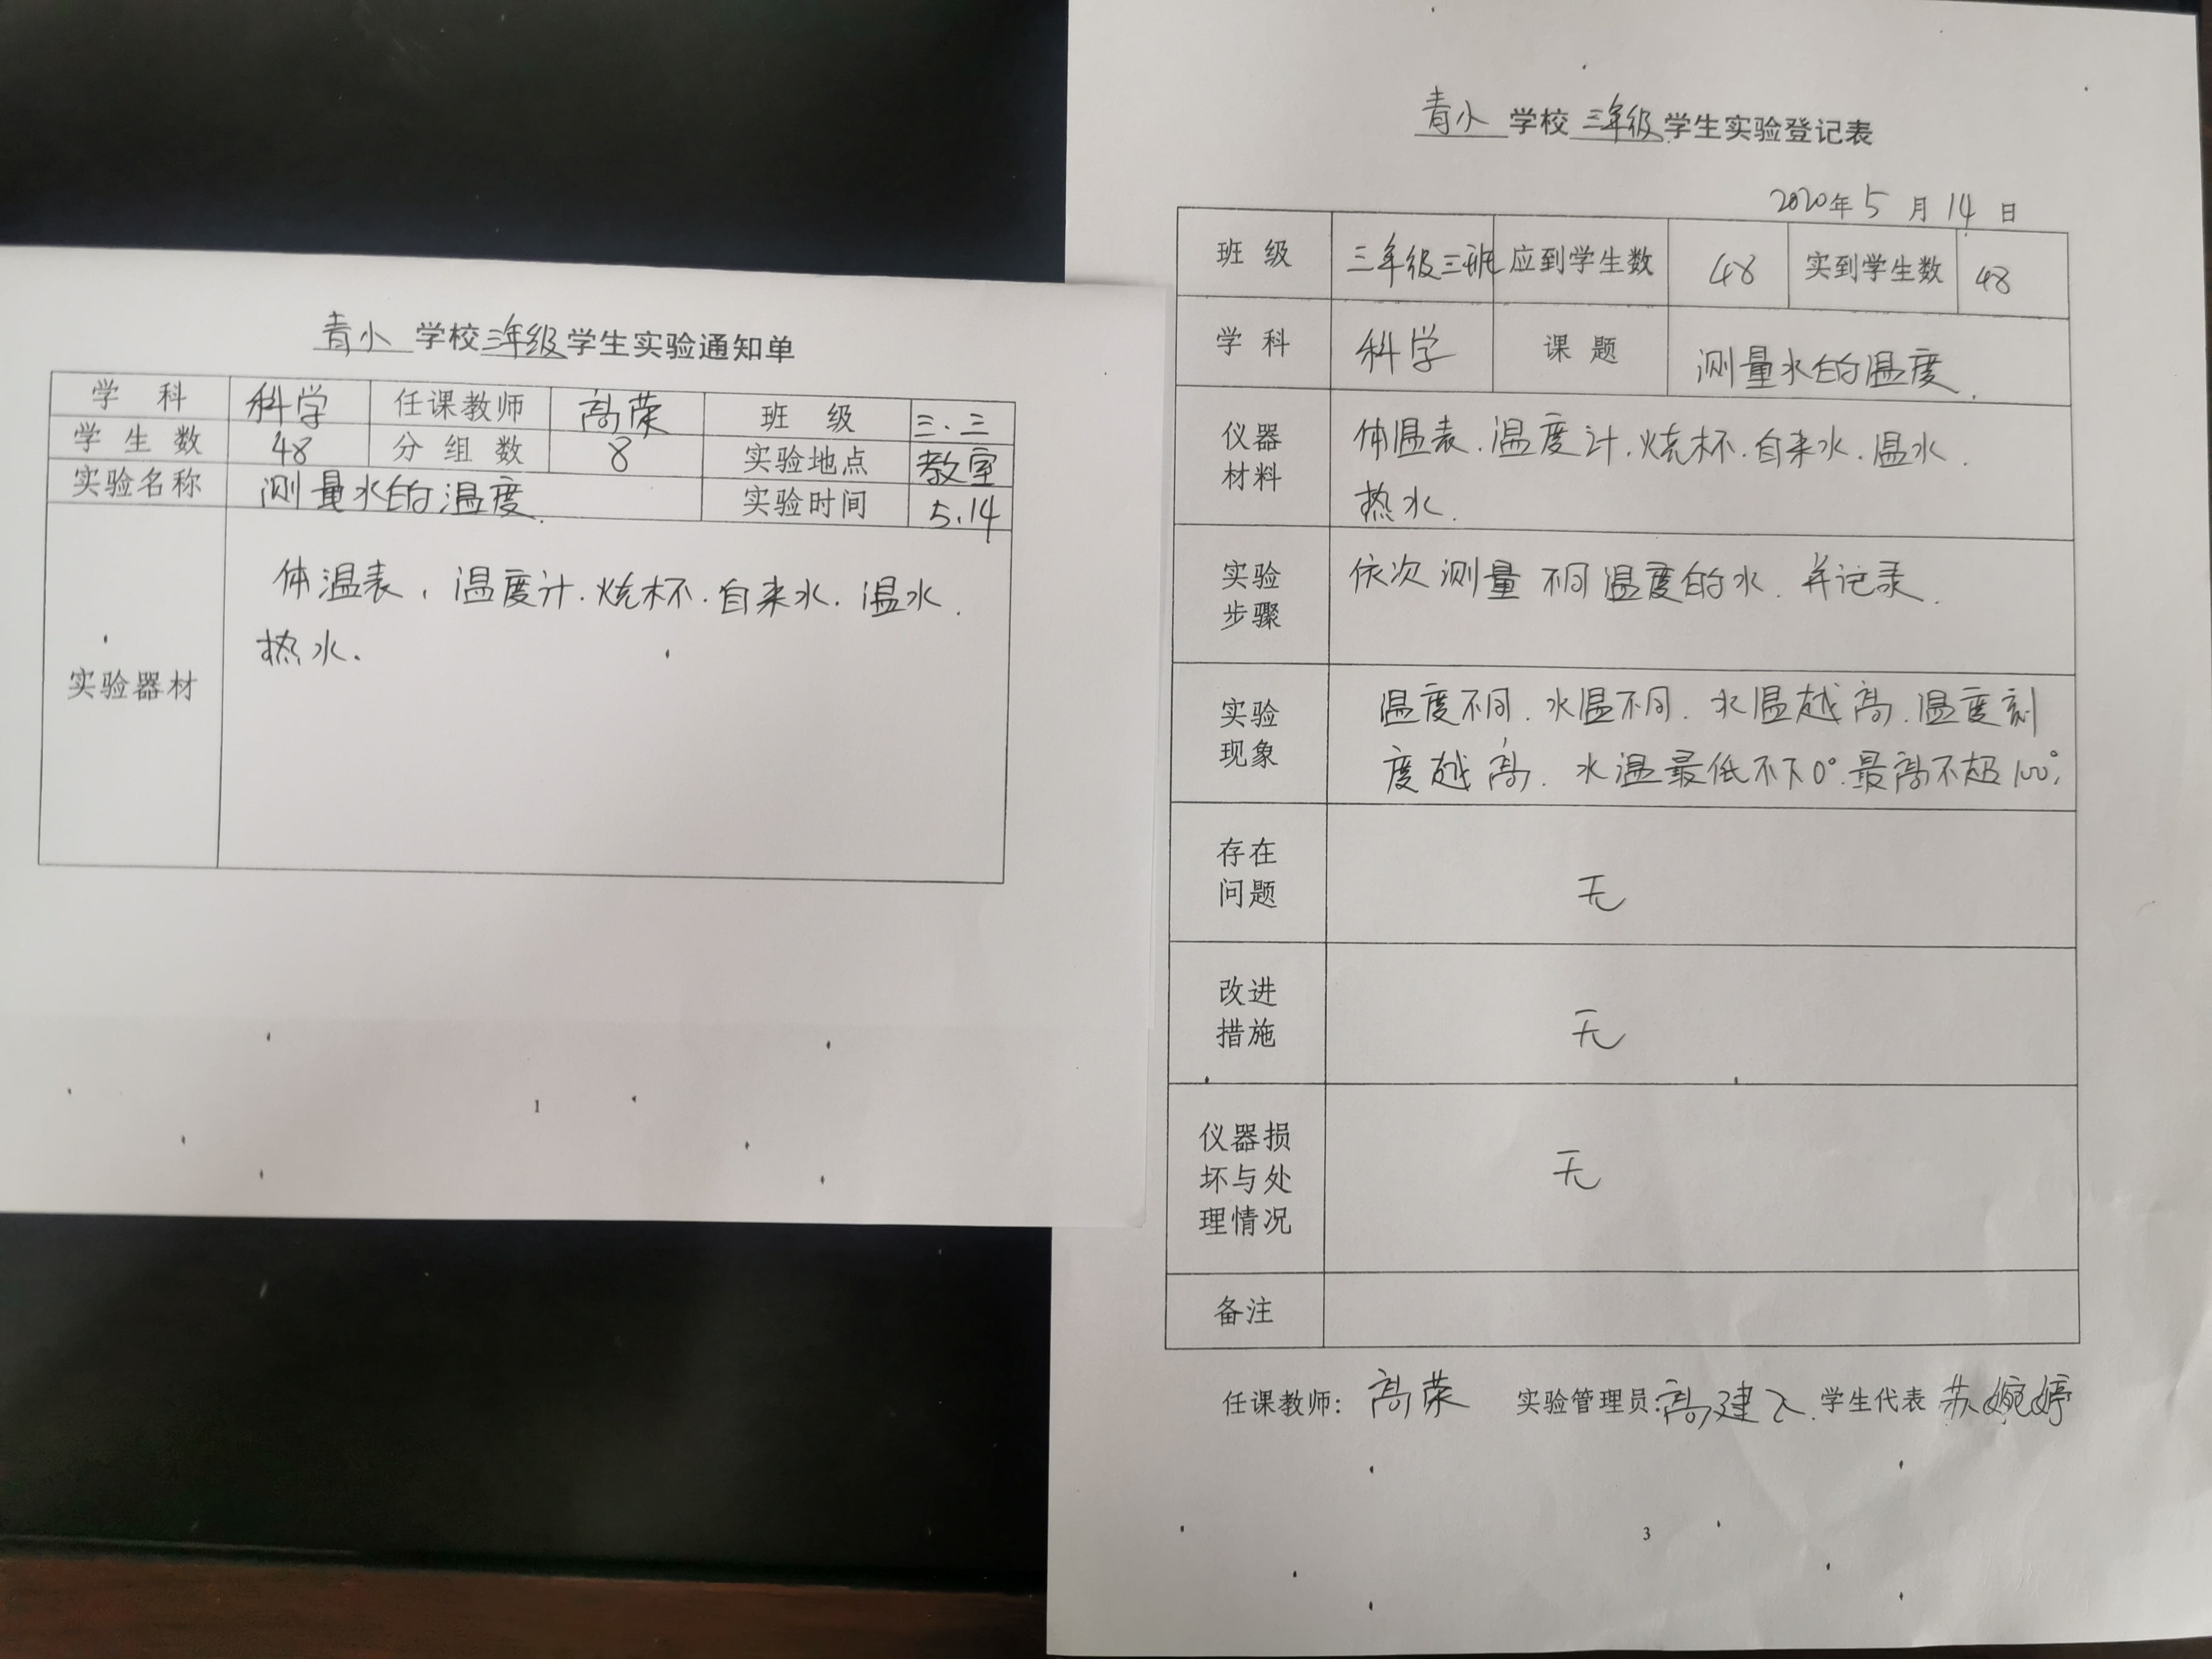 青小 学校 三年级 学生实验通知单
学 科 科学 任课教师 高荣 班 级 三.三
学 生 数 48 分 组 数 8 实验地点 教室
实验名称 测量水的温度. 实验时间 5.14
实验器材
体温表、温度计.烧杯.自来水.温水.
热水.
1
青小 学校 三年级 学生实验登记表
2020年 5 月 14 日
班 级 三年级三班 应到学生数 48 实到学生数 48
学 科 科学 课 题 测量水的温度.
仪器
材料
体温表.温度计.烧杯.自来水.温水.
热水.
实验
步骤
依次测量不同温度的水.并记录.
实验
现象
温度不同.水温不同.水温越高.温度刻
度越高.水温最低不下0°.最高不超100°.
存在
问题
无
改进
措施
无
仪器损
坏与处
理情况
无
备注
任课教师: 高荣 实验管理员: 高建 学生代表 苏婉婷
3